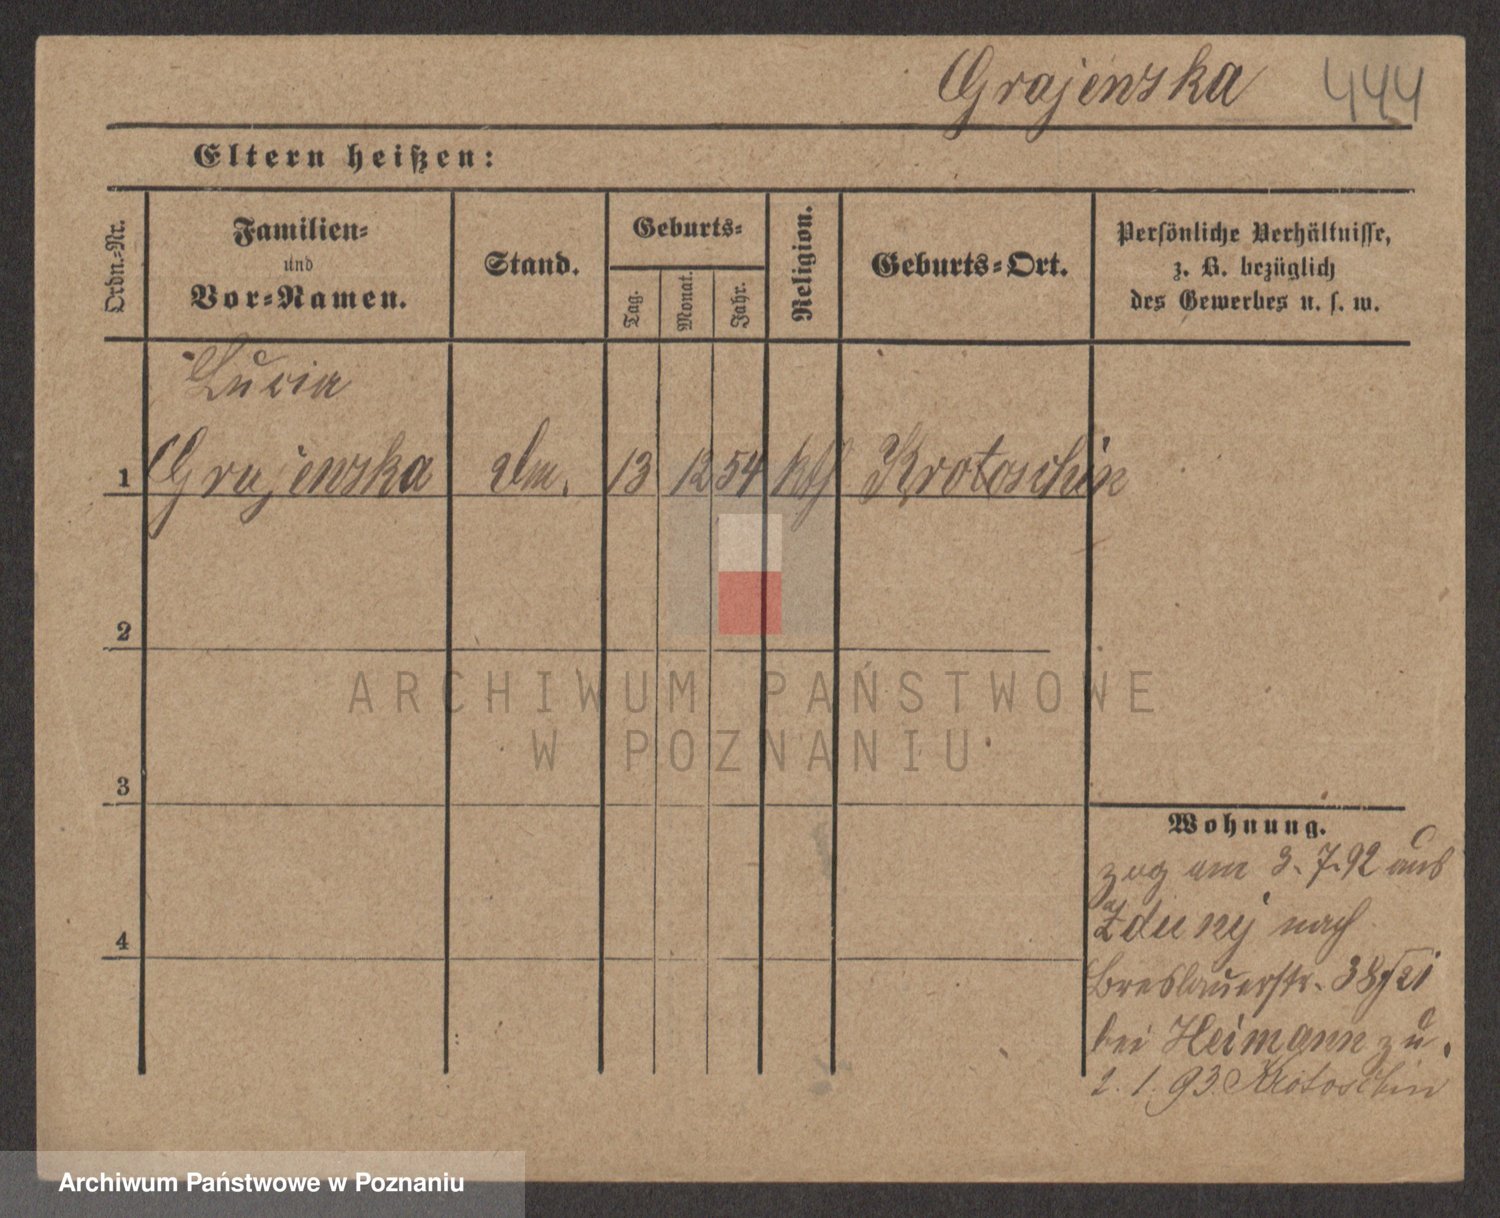 Grajewska 444
Eltern heißen:
Ordn.-Nr.
Familien-
und
Vor-Namen.
Stand.
Geburts-
Tag.
Monat.
Jahr.
Religion.
Geburts-Ort.
Persönliche Verhältnisse,
z. B. bezüglich
des Gewerbes u. s. w.
Lucia
1 Grajewska 13 12 54 kth Krotoschin
2
3
4
Wohnung.
zog am 3.7.92 aus
Zduny nach
Breslauerstr. 38
bei Heimann zu.
2.1.93 Krotoschin
ARCHIWUM PAŃSTWOWE
W POZNANIU
Archiwum Państwowe w Poznaniu